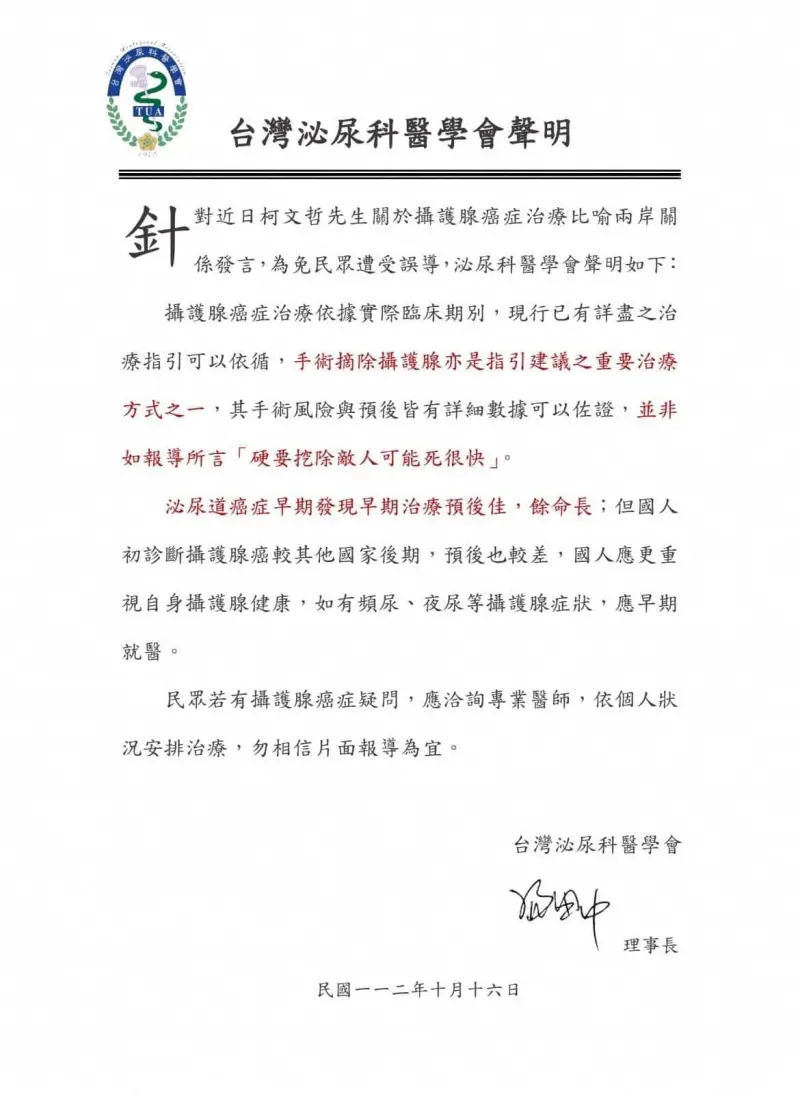 Taiwan Urological Association
台灣泌尿科醫學會
TUA
1978
台灣泌尿科醫學會聲明
針對近日柯文哲先生關於攝護腺癌症治療比喻兩岸關
係發言，為免民眾遭受誤導，泌尿科醫學會聲明如下：
攝護腺癌症治療依據實際臨床期別，現行已有詳盡之治
療指引可以依循，手術摘除攝護腺亦是指引建議之重要治療
方式之一，其手術風險與預後皆有詳細數據可以佐證，並非
如報導所言「硬要挖除敵人可能死很快」。
泌尿道癌症早期發現早期治療預後佳，餘命長；但國人
初診斷攝護腺癌較其他國家後期，預後也較差，國人應更重
視自身攝護腺健康，如有頻尿、夜尿等攝護腺症狀，應早期
就醫。
民眾若有攝護腺癌症疑問，應洽詢專業醫師，依個人狀
況安排治療，勿相信片面報導為宜。
台灣泌尿科醫學會
理事長
民國一一二年十月十六日